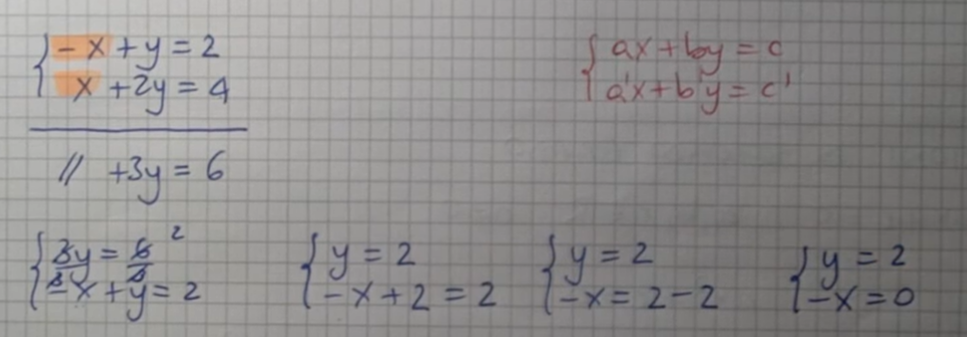 { -x + y = 2
x + 2y = 4
// +3y = 6
{ ax + by = c
a'x + b'y = c'
{ 3y/3 = 6/3 2
-x + y = 2
{ y = 2
-x + 2 = 2
{ y = 2
-x = 2 - 2
{ y = 2
-x = 0